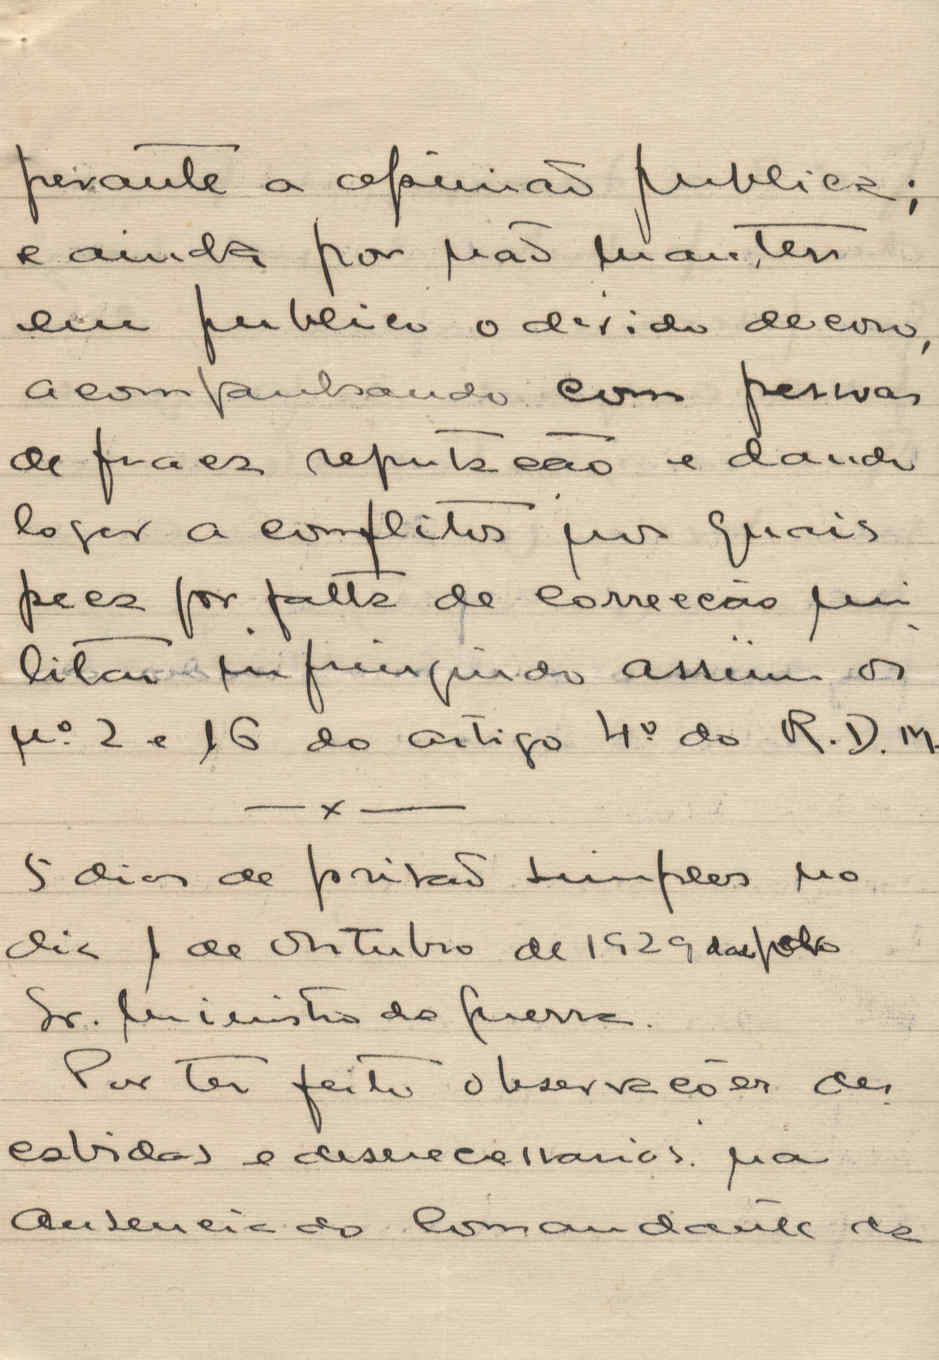 perante a opinião publica;
e ainda por não manter
em publico o divido decoro,
acompanhando com pessoas
de fraca reputacão e dando
logar a conflitos nos quais
peca por falta de correcção mi
litar infringindo assim os
nº. 2 e 16 do artigo 4º do R.D.M.
—x—
5 dias de prisão simples no
dia 1 de Outubro de 1929 pelo
Sr. Ministro da Guerra.
Por ter feito observações des
cabidas e desnecessarias na
ausencia do Comandante da